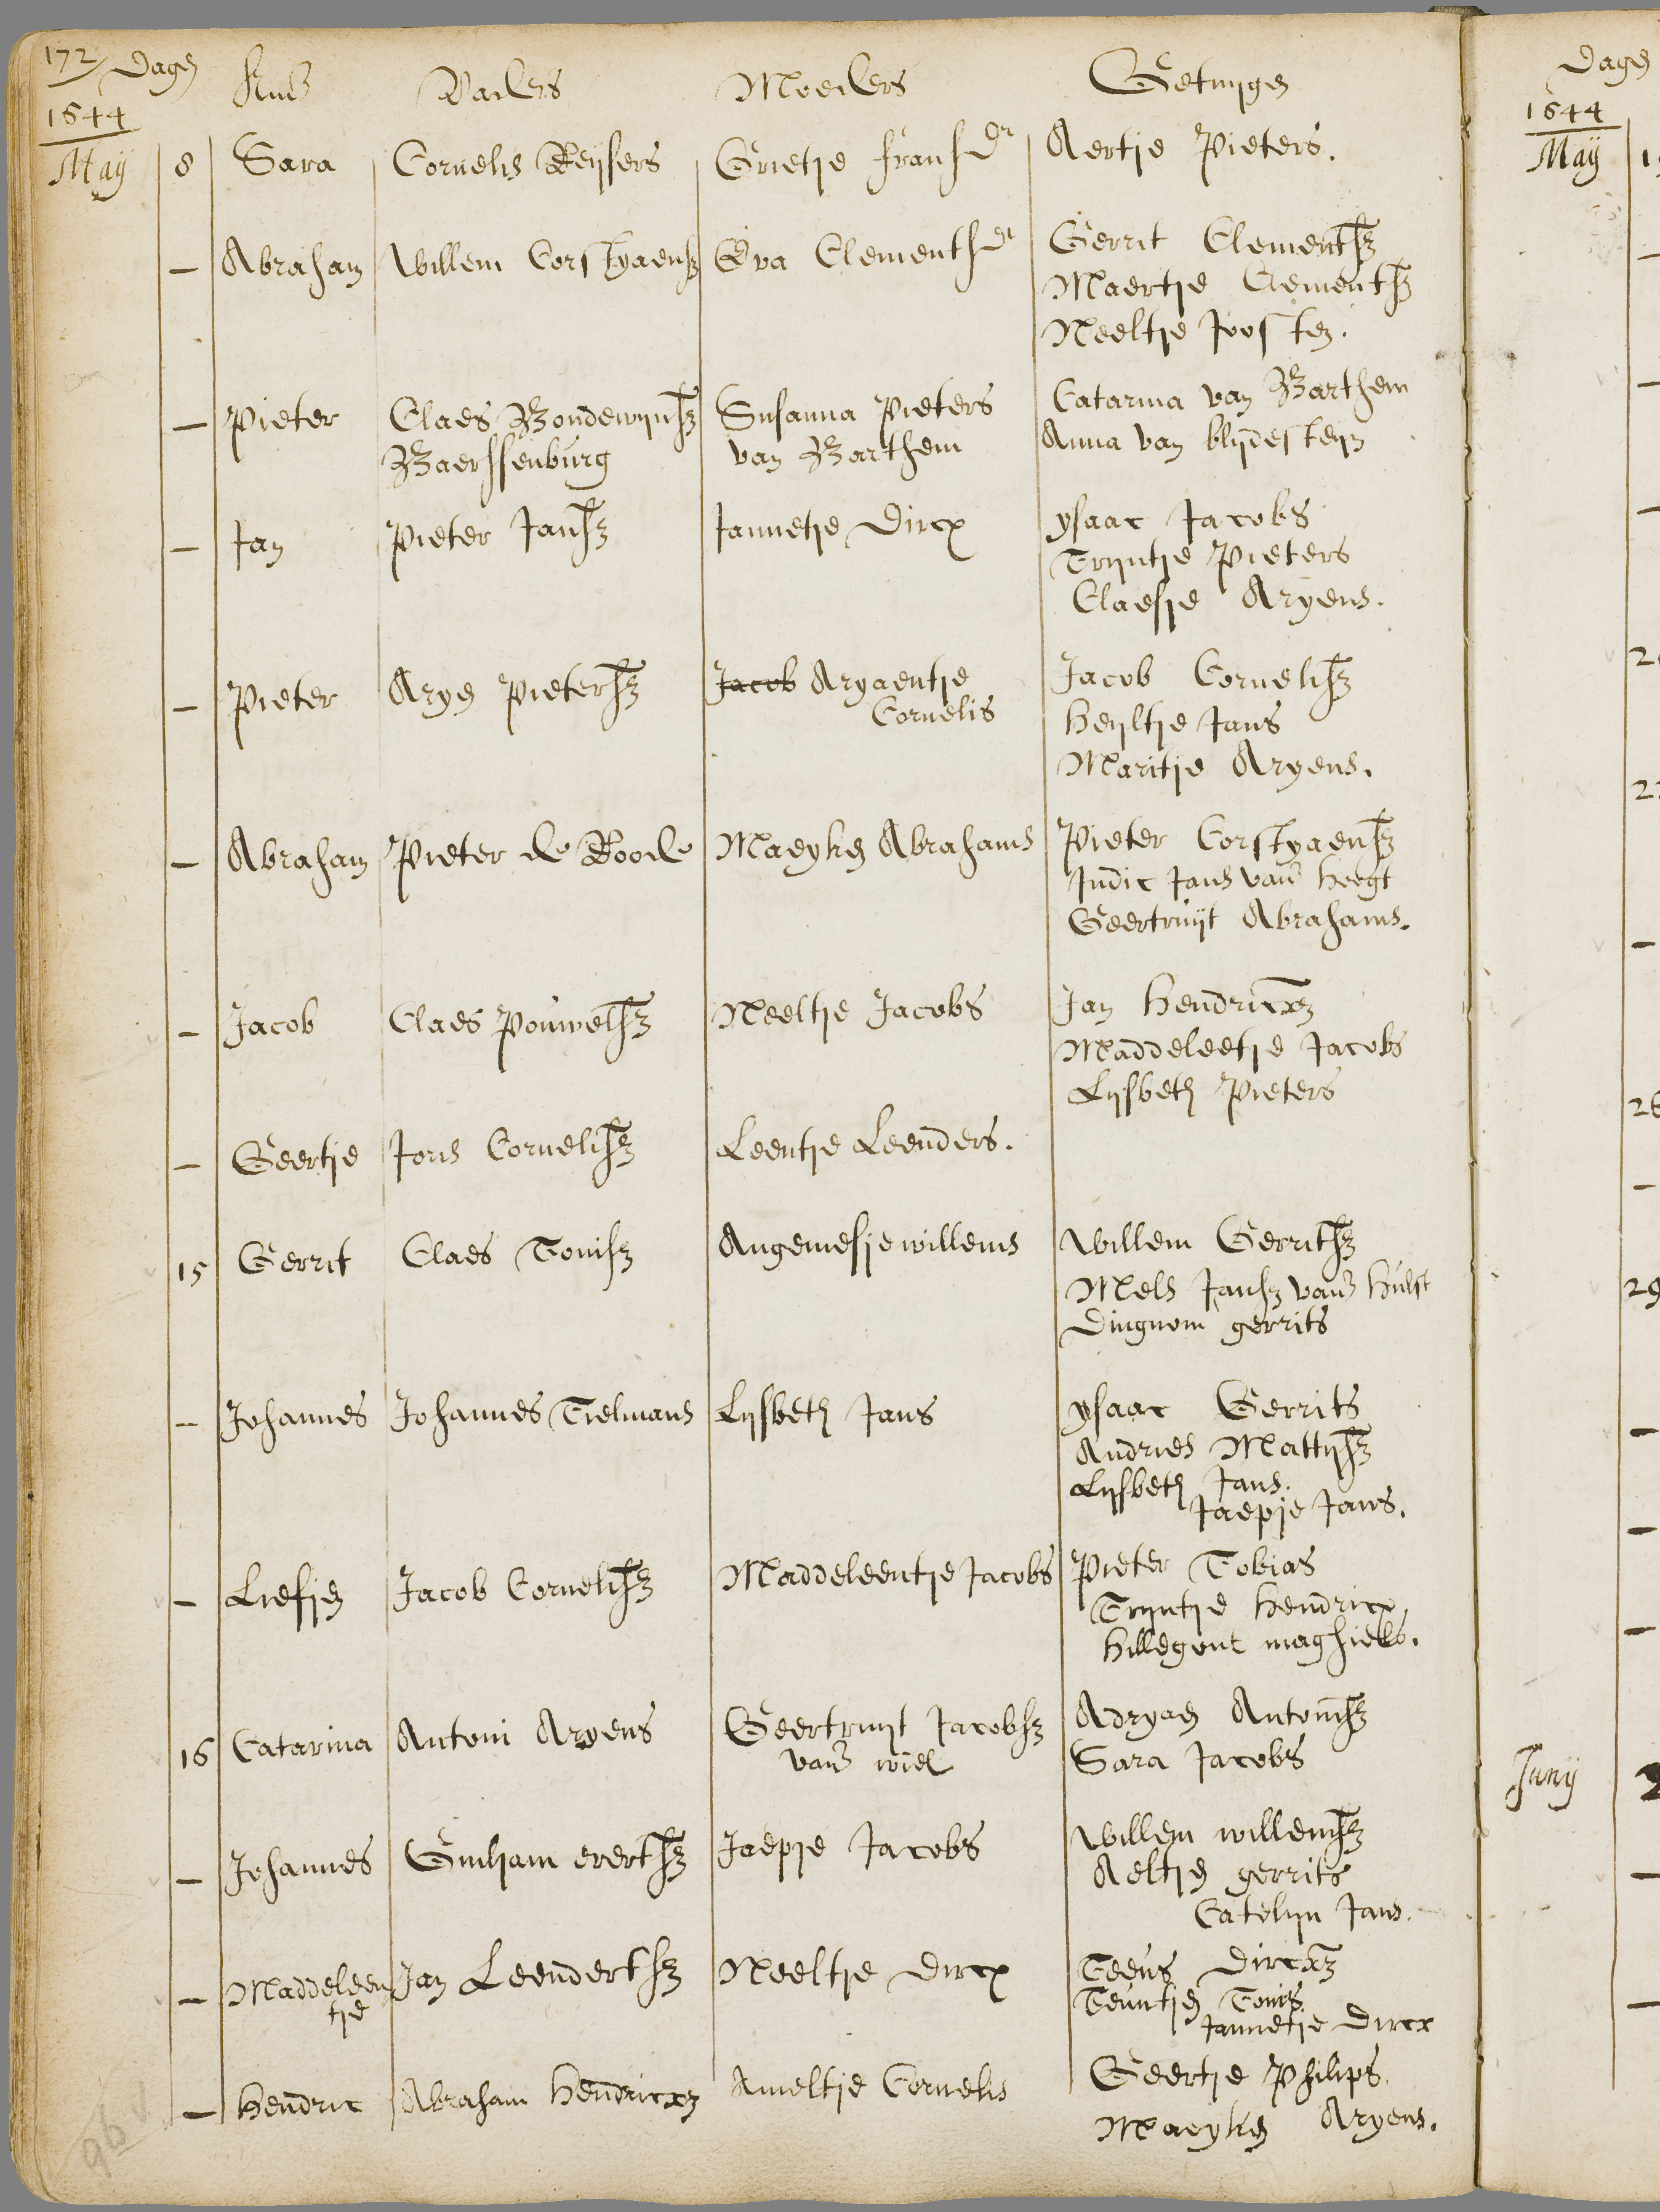 172 Dagen Kind Vaders Moeders Getuijgen
1644
Maÿ 8 Sara Cornelis Keijsers Grietje fransdr Aertje Pieters.
— Abraham Willem Corstyaensz Eva Clementsdr Gerrit Clementsz
Maertje Clementsz
Neeltje Joosten.
— Pieter Claes Boudewijnsz Susanna Pieters Catarina van Barthem
Baerssenburg van Barthem Anna van blijdesteijn
— Jan Pieter Jansz Jannetje Dircx ysaac Jacobs
Trijntje Pieters
Claesje Aryens.
— Pieter Arye Pietersz Jacob Aryaentje Jacob Cornelisz
Cornelis Heijltje Jans
Maritje Aryens.
— Abraham Pieter de Roode Maeyken Abrahams Pieter Corstyaensz
Judic Jans vand Heegt
Geertruijt Abrahams.
— Jacob Claes Pouwelsz Neeltje Jacobs Jan Hendricxz
Maddeleetje Jacobs
Lijsbeth Pieters
— Geertje Joris Cornelisz Leentje Leenders.
15 Gerrit Claes Tonisz Angeniesje willems Willem Gerritsz
Mels Jansz vand Hulst
Dingnom gerrits
— Johannes Johannes Tielmans Lijsbeth Jans ysaac Gerrits
Andries Mattijsz
Lijsbeth Jans.
Jaepje Jans.
— Liefjen Jacob Cornelisz Maddeleentje Jacobs Pieter Tobias
Trijntje Hendricx
Hillegont maghiels.
16 Catarina Antoni Aryens Geertruijt Jacobsz Adryaen Antonisz
vand wiel Sara Jacobs
— Johannes Guiljam evertsz Jaepje Jacobs Willem willemsz
Aeltjen gerrits
Catelijn Jans.
— Maddeleen Jan Leendertsz Neeltje Dircx Teeus Dircxz
tje Teuntjen Tonis
Jannetje Dircx
— Hendric Abraham Hendricxz Ameltje Cornelis Geertje Philips.
Maeyken Aryens.
96
Dagen
1644
Maÿ
Junij